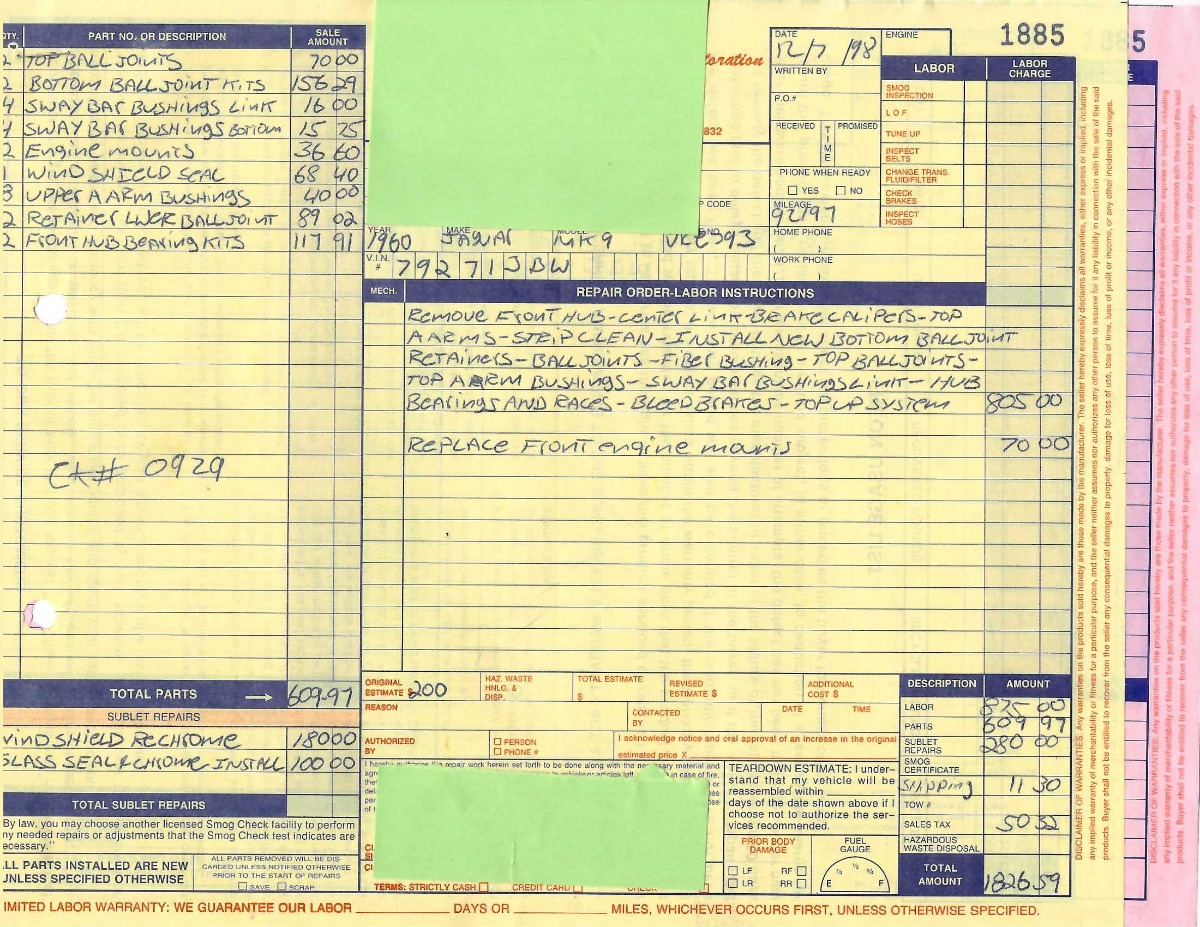 QTY. PART NO. OR DESCRIPTION SALE AMOUNT
2 TOP BALL JOINTS 70 00
2 BOTTOM BALL JOINT KITS 156 29
4 SWAY BAR BUSHINGS LINK 16 00
4 SWAY BAR BUSHINGS BOTTOM 15 75
2 ENGINE MOUNTS 36 60
1 WIND SHIELD SEAL 68 40
8 UPPER A ARM BUSHINGS 40 00
2 RETAINER LWER BALL JOINT 89 02
2 FRONT HUB BEARING KITS 117 91
CK# 0929
TOTAL PARTS 609.97
SUBLET REPAIRS
WIND SHIELD RECHROME 180 00
GLASS SEAL & CHROME INSTALL 100 00
TOTAL SUBLET REPAIRS
By law, you may choose another licensed Smog Check facility to perform
any needed repairs or adjustments that the Smog Check test indicates are
necessary."
ALL PARTS INSTALLED ARE NEW
UNLESS SPECIFIED OTHERWISE
ALL PARTS REMOVED WILL BE DIS-
CARDED UNLESS NOTIFIED OTHERWISE
PRIOR TO THE START OF REPAIRS
SAVE SCRAP
oration
832
P CODE
DATE 12/7/98
WRITTEN BY
P.O.#
RECEIVED TIME PROMISED
PHONE WHEN READY
YES NO
MILEAGE 92197
HOME PHONE
( )
WORK PHONE
( )
ENGINE
1885
LABOR LABOR CHARGE
SMOG INSPECTION
L O F
TUNE UP
INSPECT BELTS
CHANGE TRANS. FLUID/FILTER
CHECK BRAKES
INSPECT HOSES
YEAR 1960 MAKE JAGUAR MODEL MK9 NO.
V.I.N. # 79271JBW
MECH. REPAIR ORDER-LABOR INSTRUCTIONS
REMOVE FRONT HUB-CENTER LINK-BRAKE CALIPERS-TOP
A ARMS-STRIP CLEAN-INSTALL NEW BOTTOM BALL JOINT
RETAINERS-BALL JOINTS-FIBER BUSHING-TOP BALL JOINTS-
TOP A ARM BUSHINGS-SWAY BAR BUSHINGS LINK-HUB
BEARINGS AND RACES-BLEED BRAKES-TOP UP SYSTEM 805 00
REPLACE FRONT ENGINE MOUNTS 70 00
ORIGINAL ESTIMATE $ 200
HAZ. WASTE HNLG. & DISP.
TOTAL ESTIMATE $
REVISED ESTIMATE $
ADDITIONAL COST $
REASON
CONTACTED BY
DATE TIME
AUTHORIZED BY
PERSON
PHONE #
I acknowledge notice and oral approval of an increase in the original
estimated price X
I hereby authorize the repair work herein set forth to be done along with the necessary material and
TEARDOWN ESTIMATE: I under-
stand that my vehicle will be
reassembled within
days of the date shown above if I
choose not to authorize the ser-
vices recommended.
PRIOR BODY DAMAGE
LF RF
LR RR
FUEL GAUGE
E ¼ ½ ¾ F
TERMS: STRICTLY CASH CREDIT CARD CHECK
DESCRIPTION AMOUNT
LABOR 875 00
PARTS 609 97
SUBLET REPAIRS 280 00
SMOG CERTIFICATE
SHIPPING 11 30
TOW #
SALES TAX 50 32
HAZARDOUS WASTE DISPOSAL
TOTAL AMOUNT 1826 59
LIMITED LABOR WARRANTY: WE GUARANTEE OUR LABOR DAYS OR MILES, WHICHEVER OCCURS FIRST, UNLESS OTHERWISE SPECIFIED.
DISCLAIMER OF WARRANTIES: Any warranties on the products sold hereby are those made by the manufacturer. The seller hereby expressly disclaims all warranties, either express or implied, including
any implied warranty of merchantability or fitness for a particular purpose, and the seller neither assumes nor authorizes any other person to assume for it any liability in connection with the sale of the said
products. Buyer shall not be entitled to recover from the seller any consequential damages to property, damage for loss of use, loss of time, loss of profit or income, or any other incidental damages.